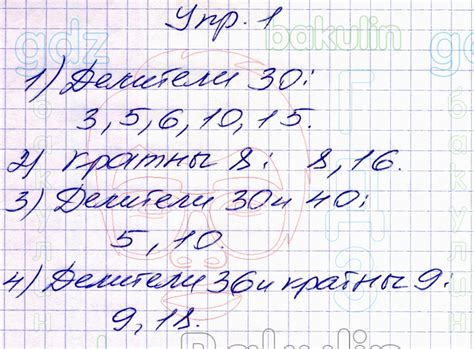 Упр. 1
gdz bakulin
1) Делители 30:
3, 5, 6, 10, 15.
2) Кратны 8: 8, 16.
3) Делители 30 и 40:
5, 10.
4) Делители 36 и кратны 9:
9, 18.
Bakulin